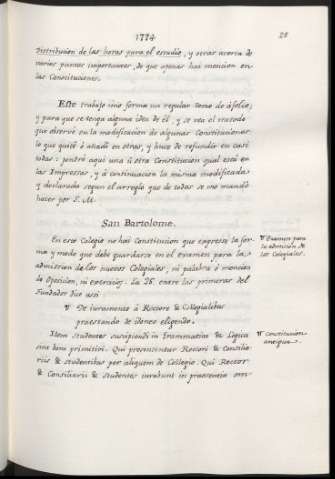 1774
28
distribucion de las horas para el estudio, y otras acerca de
varios puntos importantes, de que apenas hai mencion en
las Constituciones.
Este trabajo uno forma un regular tomo de á folio,
y para que se tenga alguna idea de él, y se vea el metodo
que observé en la modificacion de algunas Constituciones
lo que quitó ó anadió en otras, y huvo de refundir en casi
todas: pondré aqui una ú otra Constitucion qual está en
las Impressas, y á continuacion la misma modificada
y declarada segun el arreglo que de todas se me mandó
hacer por S. M.
San Bartolome.
En este Colegio no hai Constitucion que exprese la for
ma y modo que debe guardarse en el examen para la
admission de los nuevos Colegiales, ni palabra ó mencion
de Oposicion, ni exercicios. La 26. entre las primeras del
Fundador dice asi
¶ Examen para
la admision de
los Colegiales.
¶ De iuramento á Rectore & Collegialibus
praestando de idoneo eligendo.
Item Studentes suscipiendi in Grammatica & Logica
sint bene primitivi. Qui presententur Rectori & Consilia
riis & studentibus per aliquem de Collegio. Qui Rector
& Consiliarii & Studentes iurabunt in praesencia om-
¶ Constitucion
antigua.